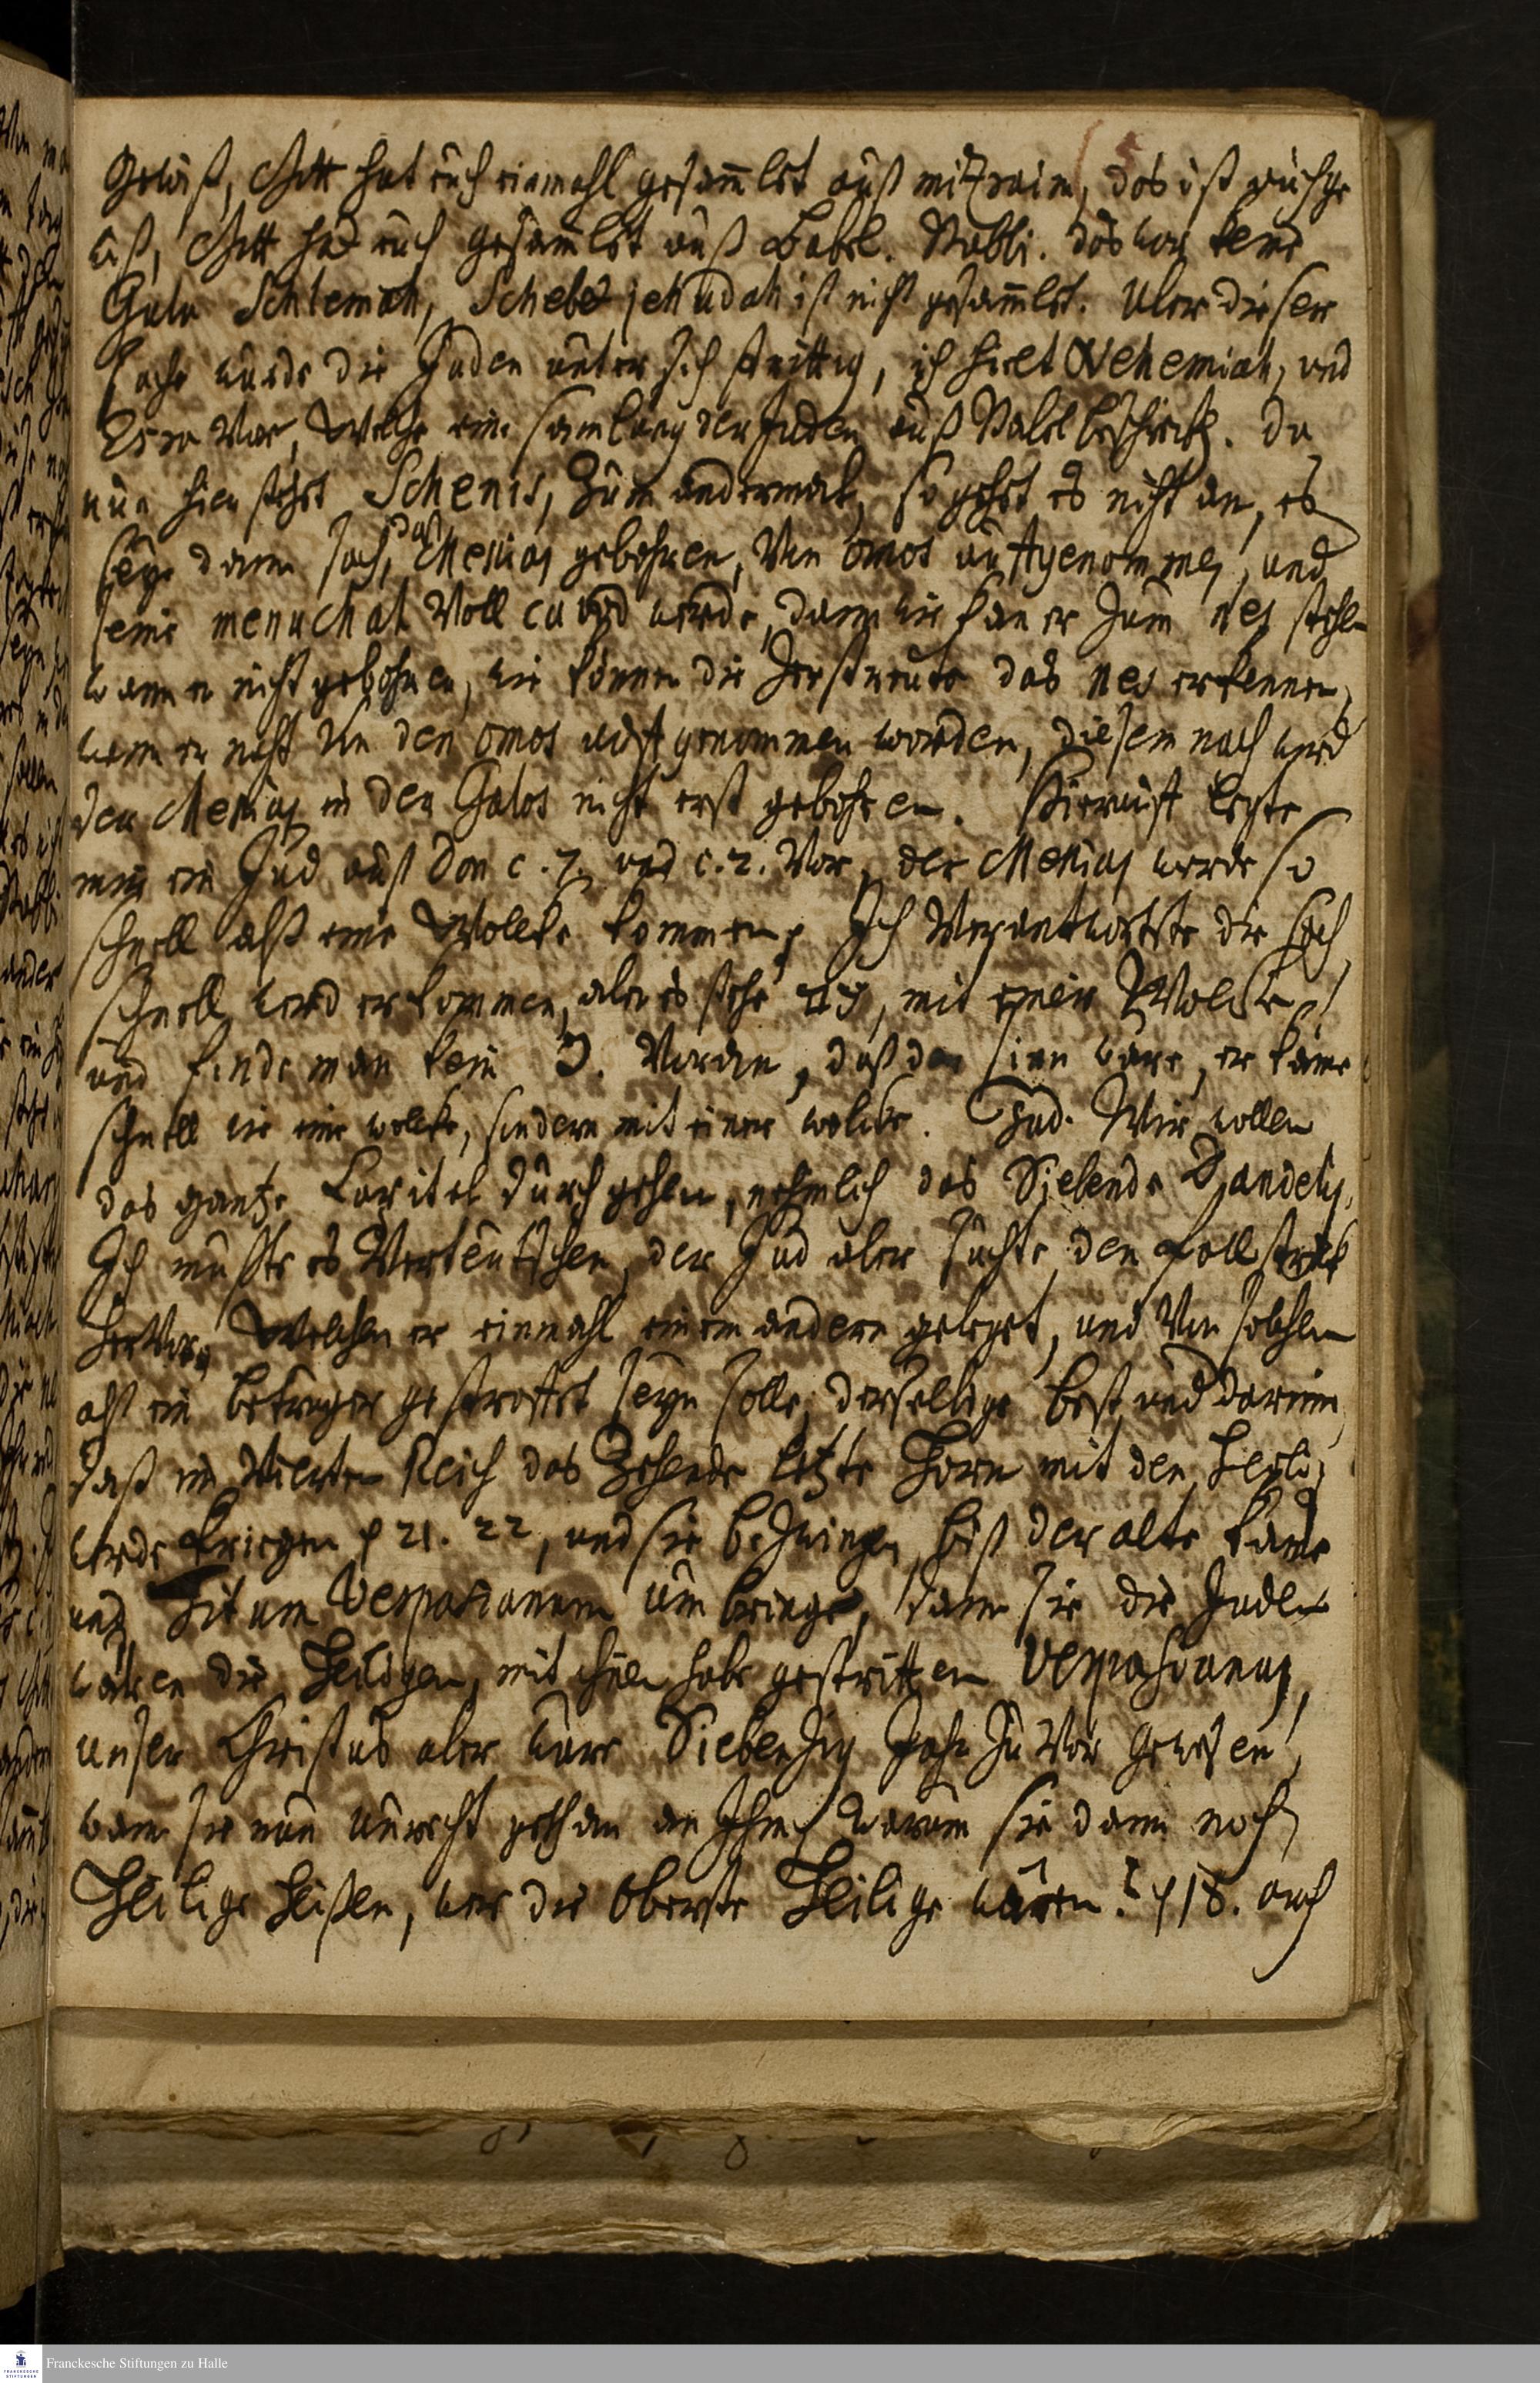 Gewiß, Gott hat euch einmahl gesam̄let auß mitzraim, das ist auch ge
wiß, Gott hat euch gesam̄let auß Babel. Rabbi. das war keine
Gula Schlemah, Schebet jehudah ist nicht gesam̄let. Uber dieser
sache wurde die Juden unter sich streittig, ich hielt Nehemiah, und
Esra Vor, Welche eine samlung der Juden auß Babel beschrieb. Da
nun hier stehet Schenis, Zum andermal, so gehet es nicht an, es
seye dann sach, daß Messias gebohren, Von omos auffgenommen, und
seine menuchah Voll werde, dann wie kan er zum nes stehen
wann er nicht gebohren, wie können die Zerstreute das nes erkennen,
wann er nicht Von den omos auffgenommen worden, diesem nach wird
der Messias in der Galos nicht erst gebohren. Hierauff legte
mir ein Jud auß Dan c. 7. und c. 2. Vor, der Messias werde so
schnell alß eine Wolcke kommen, Ich Verantwortete die sach
schnell werd er kommen, aber es stehe עם, mit einer Wolcke,
und finde man kein כ. Voran, daß der sinn wäre, er käme
schnell wie eine wolcke, sondern mit einer wolcke. Jud. Wir wollen
das gantze Capitel durchgehen, nehmlich das Siebende Danielis.
Ich muste es Verteutschen, der Jud aber suchte den Fallstrick
hervor, Welchen er einmahl einem andern geleget, und Von solchen
alß ein betrüger gestraffet seyn solle, derselbige best. und darinn,
daß im Vierten Reich das Zehende letzte Horn mit den Heyl:
werde kriegen ℣ 21. 22, und sie bezwingen, biß der alte käme
und Titum Vespasianum umbringe, dann sie die Juden
wären die Heiligen, mit ihnen habe gestritten Vespasianus,
unser Christus aber wäre Siebenzig Jahr zuvor gewesen,
wann sie nun unrecht gethan an Ihm, warum sie dann noch
Heilige heißen, wer die Oberste Heilige wären? ℣ 18. auch
Franckesche Stiftungen zu Halle